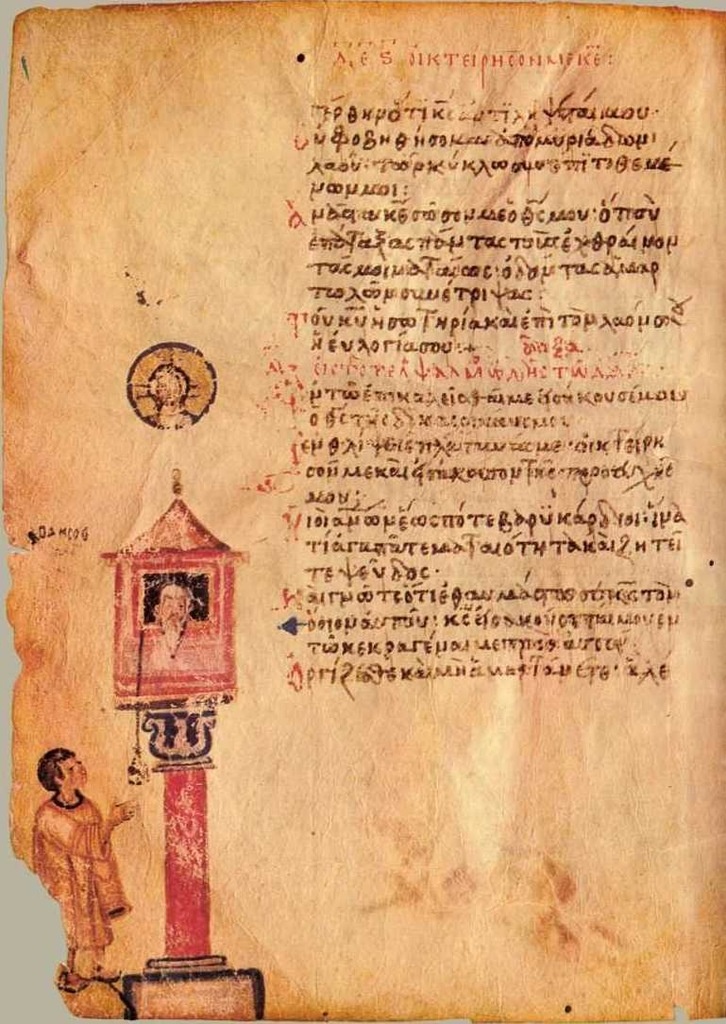 οἰκτείρησόν με κε:
γέρθην ὅτι κς ἀντιλήψεταί μου·
οὐ φοβηθήσομαι ἀπὸ μυριάδων
λαοῦ τῶν κύκλω συνεπιτιθεμέ
νων μοι:
ἀνάστα κε σῶσόν με ὁ θς μου· ὅτι σὺ
ἐπάταξας πάντας τοὺς ἐχθραίνον
τας μοι ματαίως· ὀδόντας ἁμαρ
τωλῶν συνέτριψας:
τοῦ κυ ἡ σωτηρία καὶ ἐπὶ τὸν λαόν σου
ἡ εὐλογία σου:+ δόξα
εἰς τὸ τέλος ψαλμὸς ὠδῆς τῶ δαδ
ἐν τῶ ἐπικαλεῖσθαί με εἰσήκουσέ μου
ὁ θς τῆς δικαιοσύνης μου
ἐν θλίψει ἐπλάτυνάς με· οἰκτείρη
σόν με καὶ εἰσάκουσον τῆς προσευχῆς
μου:
υἱοὶ ἀνων ἕως πότε βαρυκάρδιοι· ἵνα
τί ἀγαπᾶτε ματαιότητα καὶ ζητεῖ
τε ψεῦδος·
καὶ γνῶτε ὅτι ἐθαυμάστωσε κς τὸν
ὅσιον αὐτοῦ· κς εἰσακούσεταί μου ἐν
τῶ κεκραγέναι με πρὸς αὐτόν
ὀργίζεσθε καὶ μὴ ἁμαρτάνετε· ἃ λε